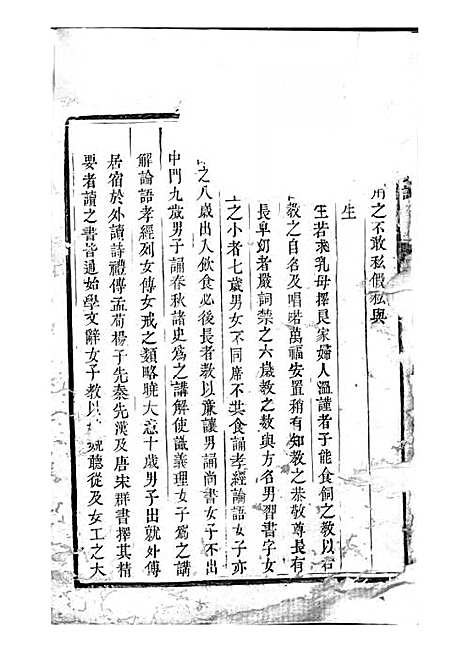 用之不敢私假私與
生
生若求乳母擇良家婦人溫謹者子能食飼之教以右
教之自名及唱喏萬福安置稍有知教之恭敬尊長有
長卑幼者嚴詞禁之六歲教之數與方名男習書字女
之小者七歲男女不同席不共食誦孝經論語女子亦
之八歲出入飲食必後長者教以廉讓男誦尚書女子不出
中門九歲男子誦春秋諸史為之講解使識義理女子為之講
解論語孝經列女傳女戒之類略曉大意十歲男子出就外傅
居宿於外讀詩禮傳孟荀楊子先秦先漢及唐宋群書擇其精
要者讀之書皆通始學文辭女子教以 婉聽從及女工之大